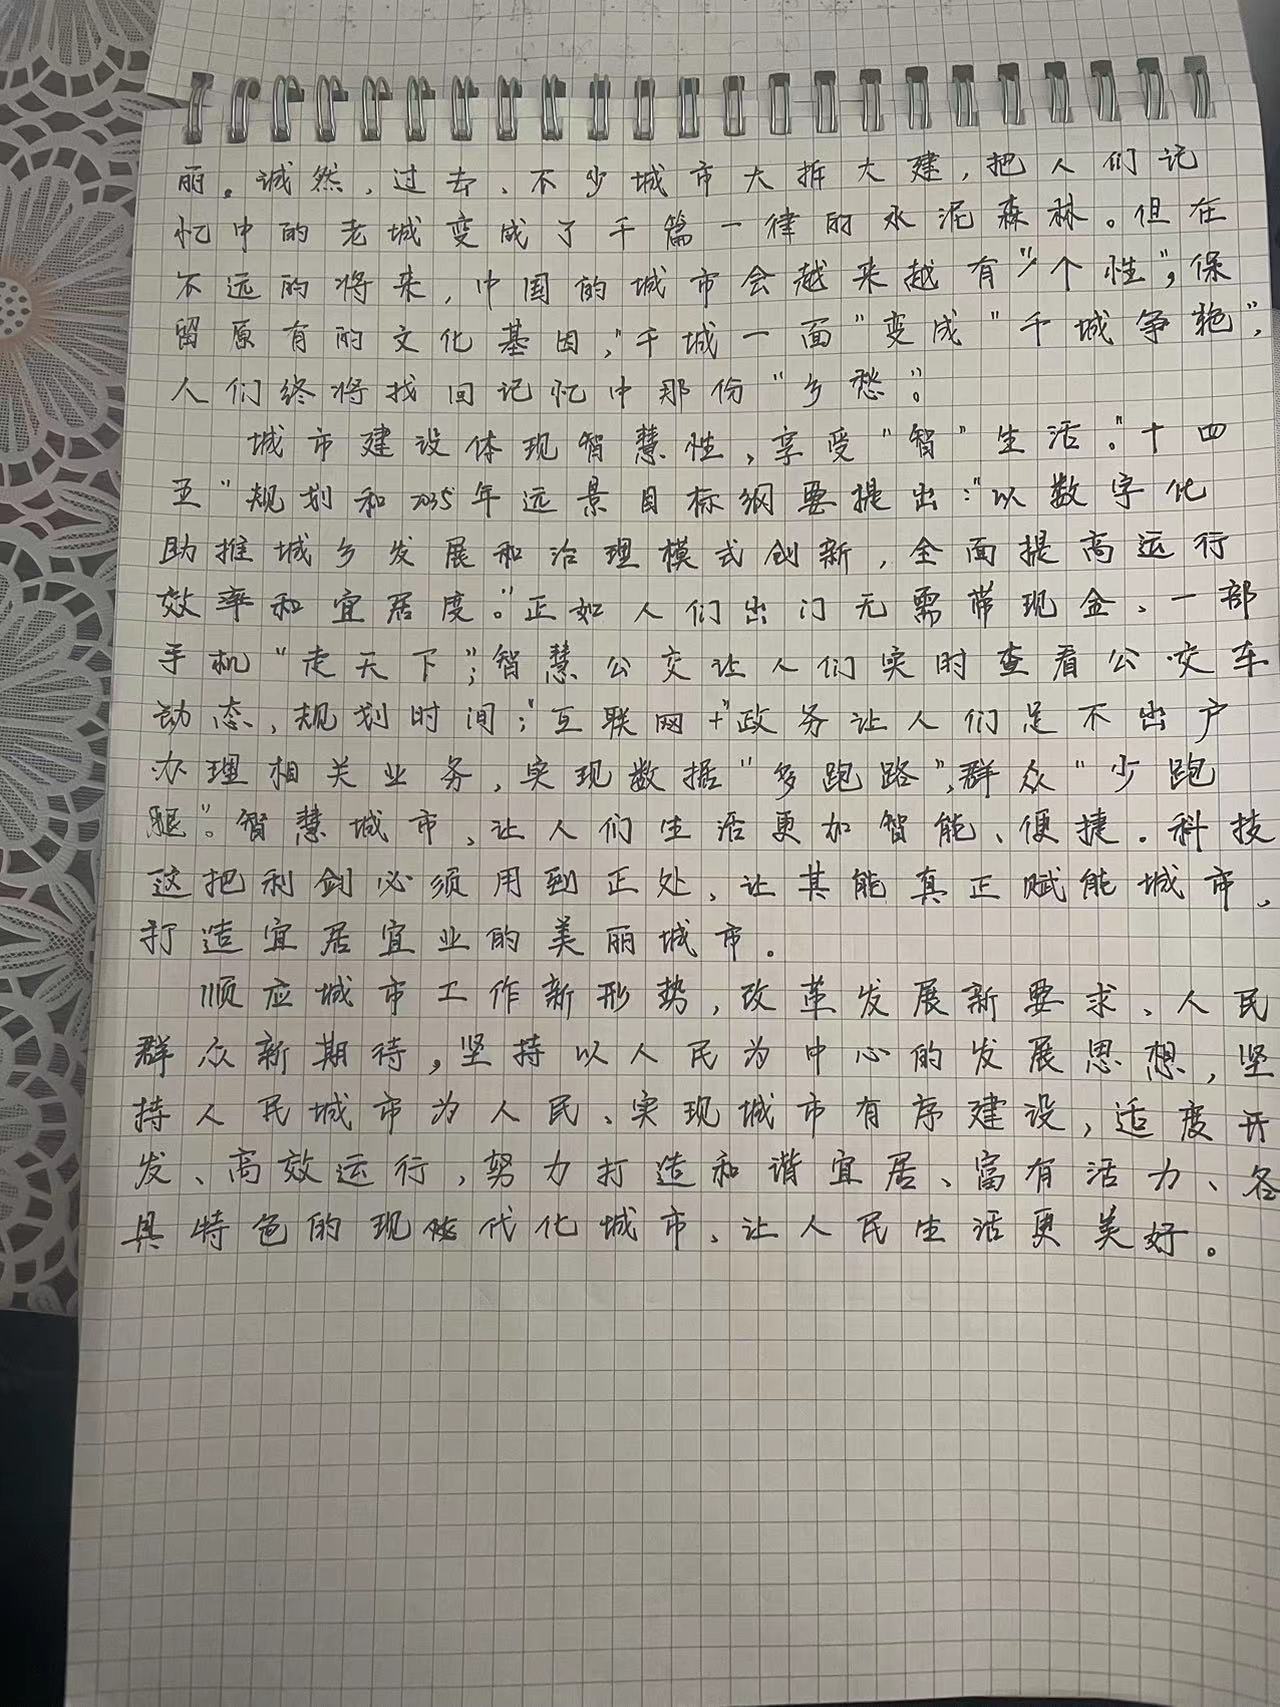 丽。诚然，过去、不少城市大拆大建，把人们记
忆中的老城变成了千篇一律的水泥森林。但在
不远的将来，中国的城市会越来越有“个性”，保
留原有的文化基因，“千城一面”变成“千城争艳”，
人们终将找回记忆中那份“乡愁”。
城市建设体现智慧性，享受“智”生活。“十四
五”规划和2035年远景目标纲要提出：“以数字化
助推城乡发展和治理模式创新，全面提高运行
效率和宜居度。”正如人们出门无需带现金、一部
手机“走天下”；智慧公交让人们实时查看公交车
动态，规划时间；“互联网+”政务让人们足不出户
办理相关业务，实现数据“多跑路”，群众“少跑
腿”。智慧城市，让人们生活更加智能、便捷。科技
这把利剑必须用到正处，让其能真正赋能城市，
打造宜居宜业的美丽城市。
顺应城市工作新形势，改革发展新要求、人民
群众新期待，坚持以人民为中心的发展思想，坚
持人民城市为人民、实现城市有序建设，适度开
发、高效运行，努力打造和谐宜居、富有活力、各
具特色的现代化城市、让人民生活更美好。